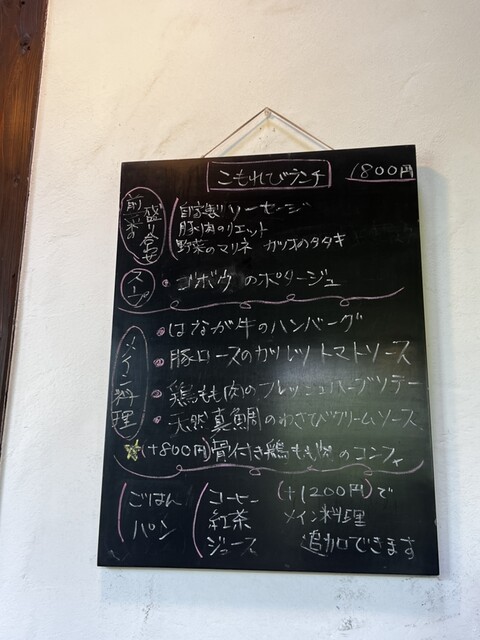 こもれびランチ 1800円
前菜の盛り合せ
自家製ソーセージ
豚肉のリエット
野菜のマリネ カツオのタタキ
スープ
・ゴボウのポタージュ
メイン料理
・はなが牛のハンバーグ
・豚ロースのカツレツ トマトソース
・鶏もも肉のフレッシュハーブソテー
・天然真鯛のわさびクリームソース
(+800円)骨付き鶏もも肉のコンフィ
ごはん
パン
コーヒー
紅茶
ジュース
(+1200円)で
メイン料理
追加できます